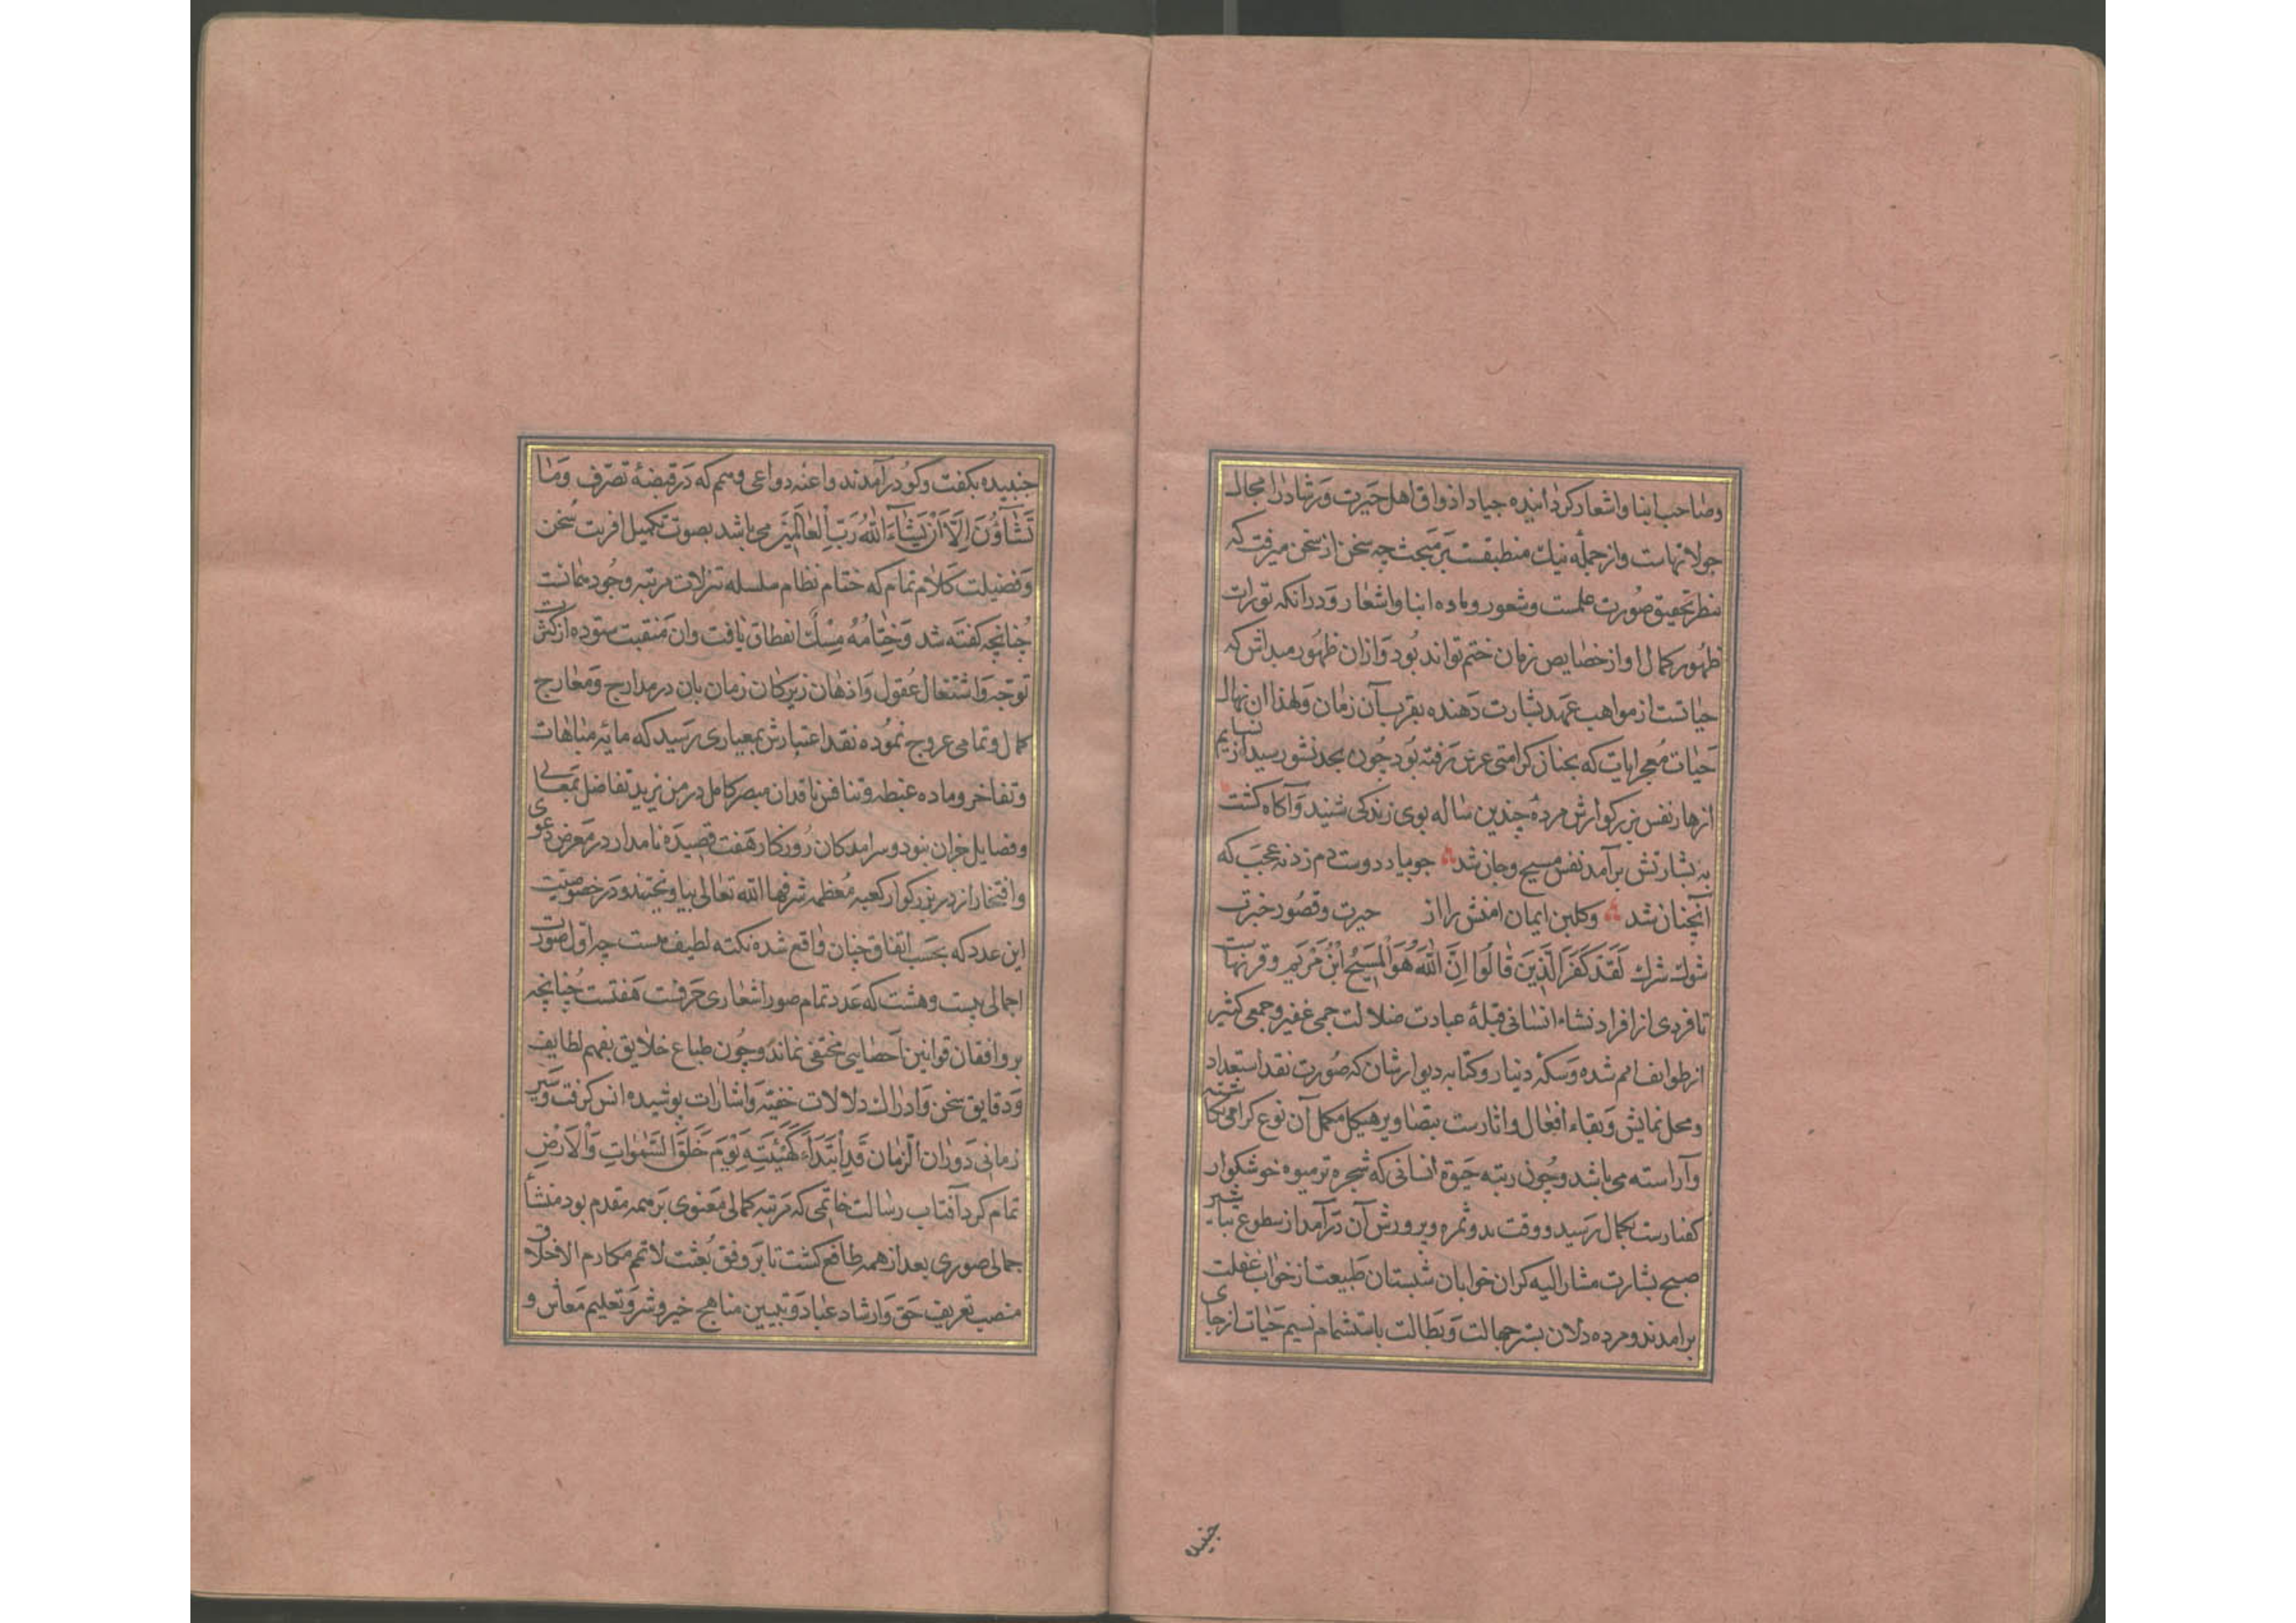 وصاحب ابنا واشعار کردانیده جیاد اذواق اهل حیرت ورشاد را مجال
جولانهاست وازجمله نیک منطبقست برمبحث چه سخن ازسخن میرفت که
بنظر تحقیق صورت علمست وشعور وماده ابنا واشعار ودرانکه تورات
ظهور کمال او ازخصایص زمان ختم تواند بود وازان ظهور مبداش که
حیاتست ازمواهب عهد بشارت دهنده بقرب آن زمان ولهذا ان نهال
حیات معجرایات که بجناز کرامتی عرش رفته بود چون بحد نشور رسید ازنسایم
ازهار نفس بزرکوارش مرده چندین ساله بوی زندکی شنید وآکاه کشت
به بشارتش برآمد نفس مسیح وجان شد جو بیاد دوست دم زد نه عجب که
آنچنان شد وکلبن ایمان امتش را از حیرت وقصور خبرت
شوک شرک لَقَدْ کَفَرَ الَّذِینَ قَالُوا اِنَّ اللّٰهَ هُوَ الْمَسِیحُ ابْنُ مَرْیَم وقرنهاست
تا فردی ازافراد نشاء انسانی قبلهٔ عبادت ضلالت جمی غفیر وجمعی کثیر
ازطوایف امم شده وسکه دینار وکتابه دیوارشان که صورت نقد استعداد
ومحل نمایش وبقاء افعال واثارست بتصاویر هیکل مکمل آن نوع کرامی نکاشته
وآراسته می باشد وچون رتبه حیوة انسانی که شجره ترمیوه خوشکوار
کفتارست بکمال رسید ووقت بدو ثمره وپرورش آن درآمد از سطوع تباشیر
صبح بشارت مشارالیه کران خوابان شبستان طبیعت ازخواب غفلت
برامدند ومرده دلان بستر جهالت وبطالت باستشمام نسیم حیات ازجای
جنبیده
جنبیده بکفت وکو درآمدند واعنه دواعی وهمم که درقبضهٔ تصرّف وَمَا
تَشَآؤُنَ اِلَّا اَنْ یَشَاءَ اللّٰهُ رَبُّ الْعَالَمِینَ می باشد بصوب تکمیل افریت سخن
وفضیلت کلام تمام که ختام نظام سلسله تنزلات مرتبه وجود همانست
چنانچه کفته شد وَخِتَامُهُ مِسْكٌ انعطاق یافت وان منقبت ستوده ازکثرت
توجّه واشتغال عقول واذهان زیرکان زمان بان درمدارج ومعارج
کمال وتمامی عروج نموده نقد اعتبارش بمعیاری رسید که مایه مباهات
وتفاخر وماده غبطه وتنافس ناقدان مبصر کامل درمن یزید تفاضل بمعالی
وفضایل خران بود وسرامدکان روزکار هفت قصیده نامدار درمعرض دعوی
وافتخار از در بزرکوار کعبه معظمه شرفها الله تعالی بیاویختند ودرخصوصیت
این عدد که بحسب اتفاق چنان واقع شده نکته لطیف هست چه اوّل صورت
اجمالی بیست وهشت که عدد تمام صور اشعاری حرفست هفتست چنانچه
بر واقفان قوانین احصایی مختفی نماند وچون طباع خلایق بفهم لطایف
ودقایق سخن وادراک دلالات خفیّه واشارات پوشیده انس کرفت وسیر
زمانی دوران الزمان قَدِ ابْتَدَاَ کَهَیْئَتِهِ یَوْمَ خَلَقَ السَّمٰوَاتِ وَالْاَرْضِ
تمام کرد آفتاب رسالت خاتمی که مرتبه کمالی معنوی برهمه مقدم بود منشأ
جمالی صوری بعد از همه طالع کشت تا بر وفق بعثت لاتمم مکارم الاخلاق
منصب تعریف حق وارشاد عباد وتبیین مناهج خیر وشر وتعلیم معاش و